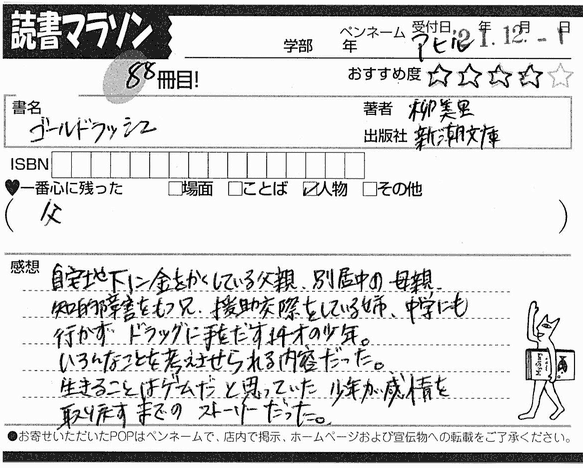 読書マラソン
学部 年 ペンネーム アヒル 受付日 年 月 日
21.12.-1
88冊目!
おすすめ度 ☆☆☆☆☆
書名 ゴールドラッシュ
著者 柳美里
出版社 新潮文庫
ISBN
♥一番心に残った □場面 □ことば ☑人物 □その他
( 父 )
感想
自宅地下に金をかくしている父親、別居中の母親、
知的障害をもつ兄、援助交際をしている姉、中学にも
行かず ドラッグに手をだす14才の少年。
いろんなことを考えさせられる内容だった。
生きることはゲームだ と思っていた 少年が感情を
取り戻す までの ストーリーだった。
●お寄せいただいたPOPはペンネームで、店内で掲示、ホームページおよび宣伝物への転載をご了承ください。